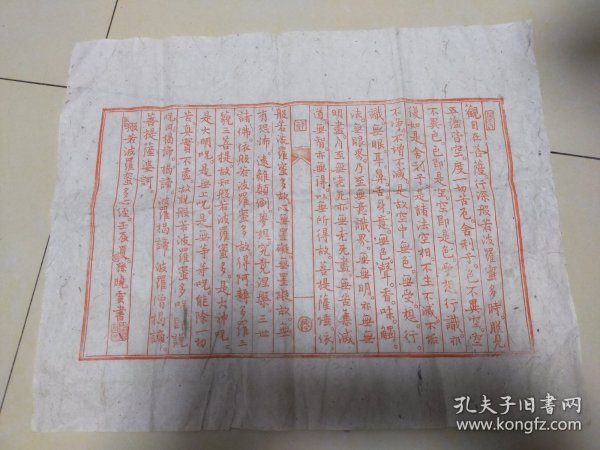 觀自在菩薩行深般若波羅蜜多時照見
五蘊皆空度一切苦厄舍利子色不異空空
不異色色即是空空即是色受想行識亦
復如是舍利子是諸法空相不生不滅不垢
不淨不增不減是故空中無色無受想行
識無眼耳鼻舌身意無色聲香味觸
法無眼界乃至無意識界無無明亦無無
明盡乃至無老死亦無老死盡無苦集滅
道無智亦無得以無所得故菩提薩埵依
般若波羅蜜多故心無罣礙無罣礙故無
有恐怖遠離顛倒夢想究竟涅槃三世
諸佛依般若波羅蜜多故得阿耨多羅三
藐三菩提故知般若波羅蜜多是大神咒
是大明咒是無上咒是無等等咒能除一切
苦真實不虛故說般若波羅蜜多咒即說
咒曰揭諦揭諦波羅揭諦波羅僧揭諦
菩提薩婆訶
般若波羅蜜多心經壬辰夏孫曉雲書
孔夫子旧书网
www.kongfz.com